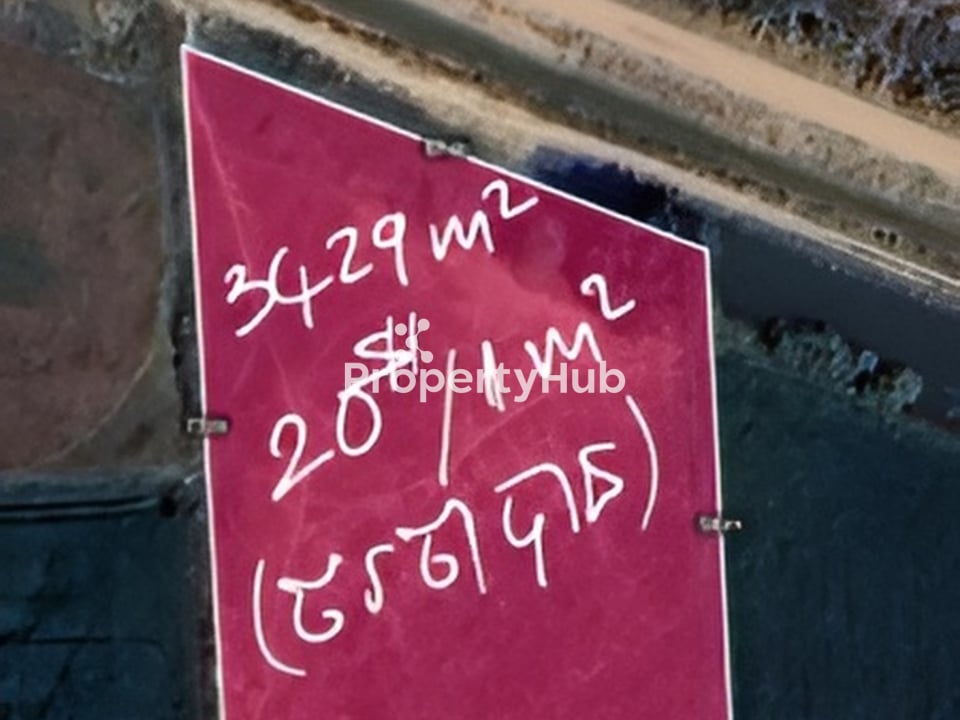 3429 m²
20$/1m²
PropertyHub
(ចរចាបាន)